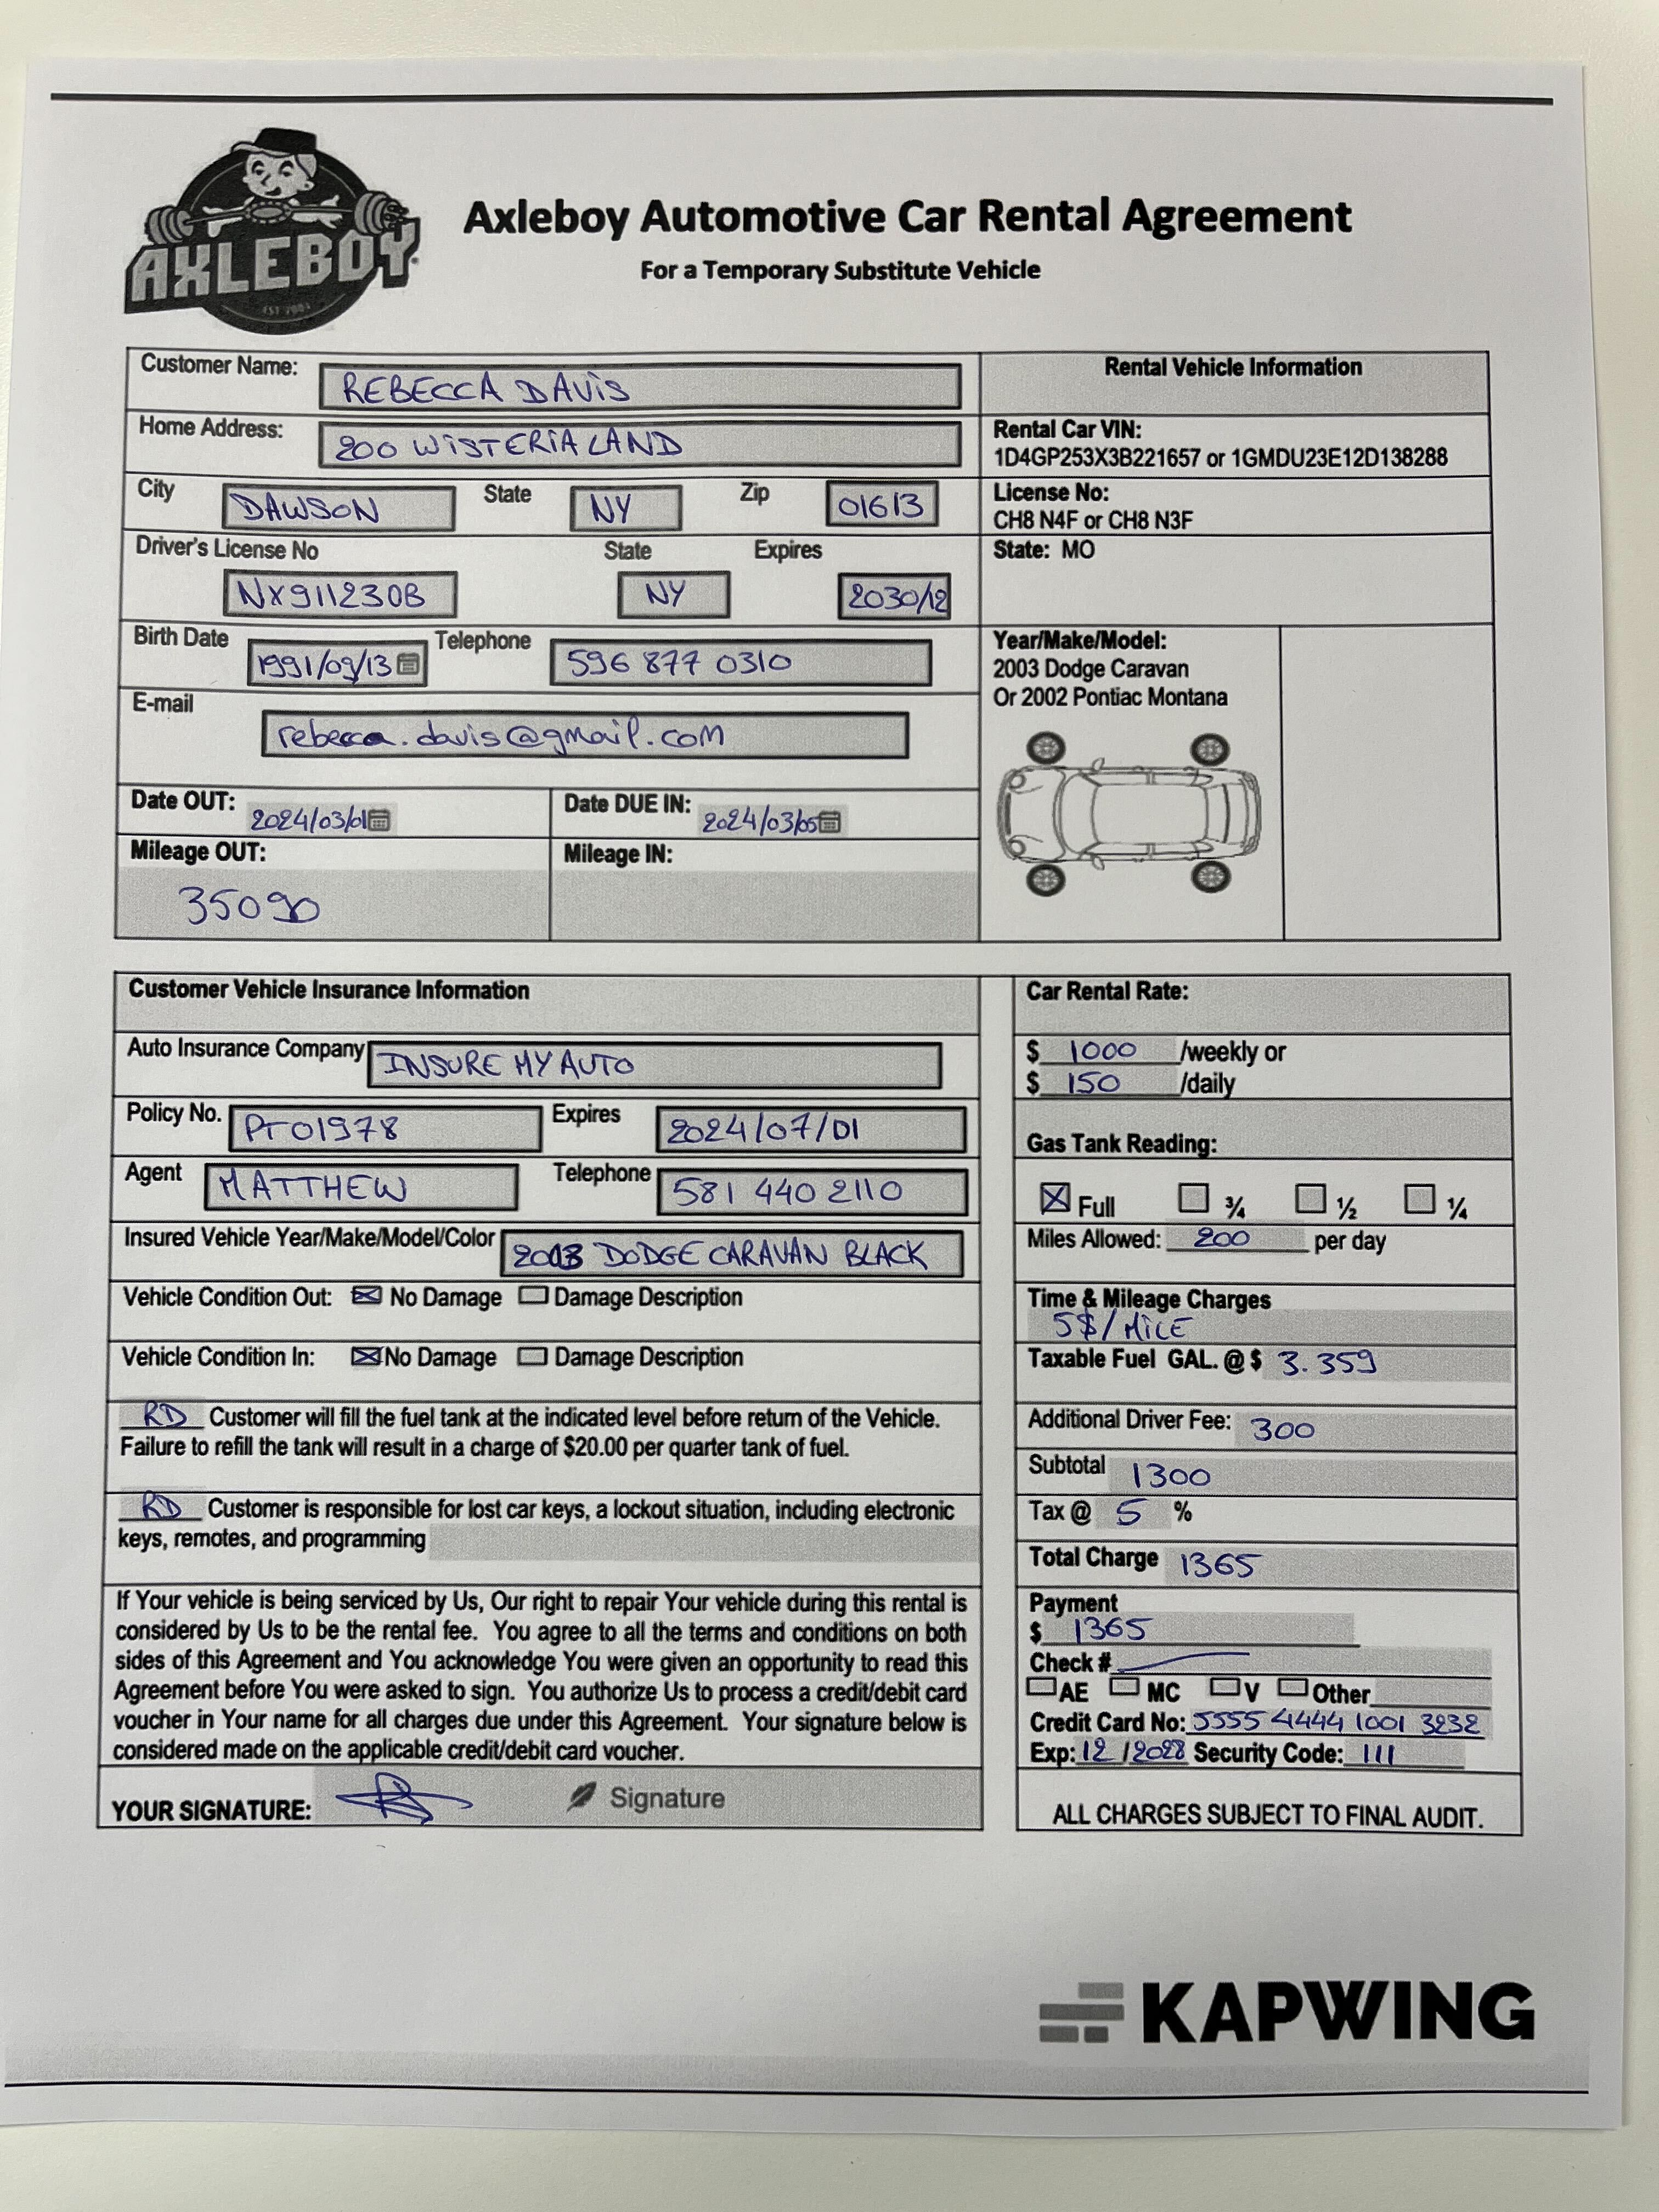 AXLEBOY
EST 2004
Axleboy Automotive Car Rental Agreement
For a Temporary Substitute Vehicle
Customer Name: REBECCA DAVIS
Home Address: 200 WISTERIA LAND
City DAWSON State NY Zip 01613
Driver's License No State Expires
NX911230B NY 2030/12
Birth Date 1991/09/13 Telephone 596 877 0310
E-mail
rebecca.davis@gmail.com
Date OUT: 2024/03/01 Date DUE IN: 2024/03/05
Mileage OUT: Mileage IN:
35090
Rental Vehicle Information
Rental Car VIN:
1D4GP253X3B221657 or 1GMDU23E12D138288
License No:
CH8 N4F or CH8 N3F
State: MO
Year/Make/Model:
2003 Dodge Caravan
Or 2002 Pontiac Montana
Customer Vehicle Insurance Information
Auto Insurance Company INSURE MY AUTO
Policy No. PT01978 Expires 2024/07/01
Agent MATTHEW Telephone 581 440 2110
Insured Vehicle Year/Make/Model/Color 2003 DODGE CARAVAN BLACK
Vehicle Condition Out: No Damage Damage Description
Vehicle Condition In: No Damage Damage Description
RD Customer will fill the fuel tank at the indicated level before return of the Vehicle.
Failure to refill the tank will result in a charge of $20.00 per quarter tank of fuel.
RD Customer is responsible for lost car keys, a lockout situation, including electronic
keys, remotes, and programming
If Your vehicle is being serviced by Us, Our right to repair Your vehicle during this rental is
considered by Us to be the rental fee. You agree to all the terms and conditions on both
sides of this Agreement and You acknowledge You were given an opportunity to read this
Agreement before You were asked to sign. You authorize Us to process a credit/debit card
voucher in Your name for all charges due under this Agreement. Your signature below is
considered made on the applicable credit/debit card voucher.
YOUR SIGNATURE: Signature
Car Rental Rate:
$ 1000 /weekly or
$ 150 /daily
Gas Tank Reading:
Full ¾ ½ ¼
Miles Allowed: 200 per day
Time & Mileage Charges
5$/MILE
Taxable Fuel GAL. @ $ 3.359
Additional Driver Fee: 300
Subtotal 1300
Tax @ 5 %
Total Charge 1365
Payment
$ 1365
Check #
AE MC V Other
Credit Card No: 5555 4444 1001 3232
Exp: 12 / 2028 Security Code: 111
ALL CHARGES SUBJECT TO FINAL AUDIT.
KAPWING